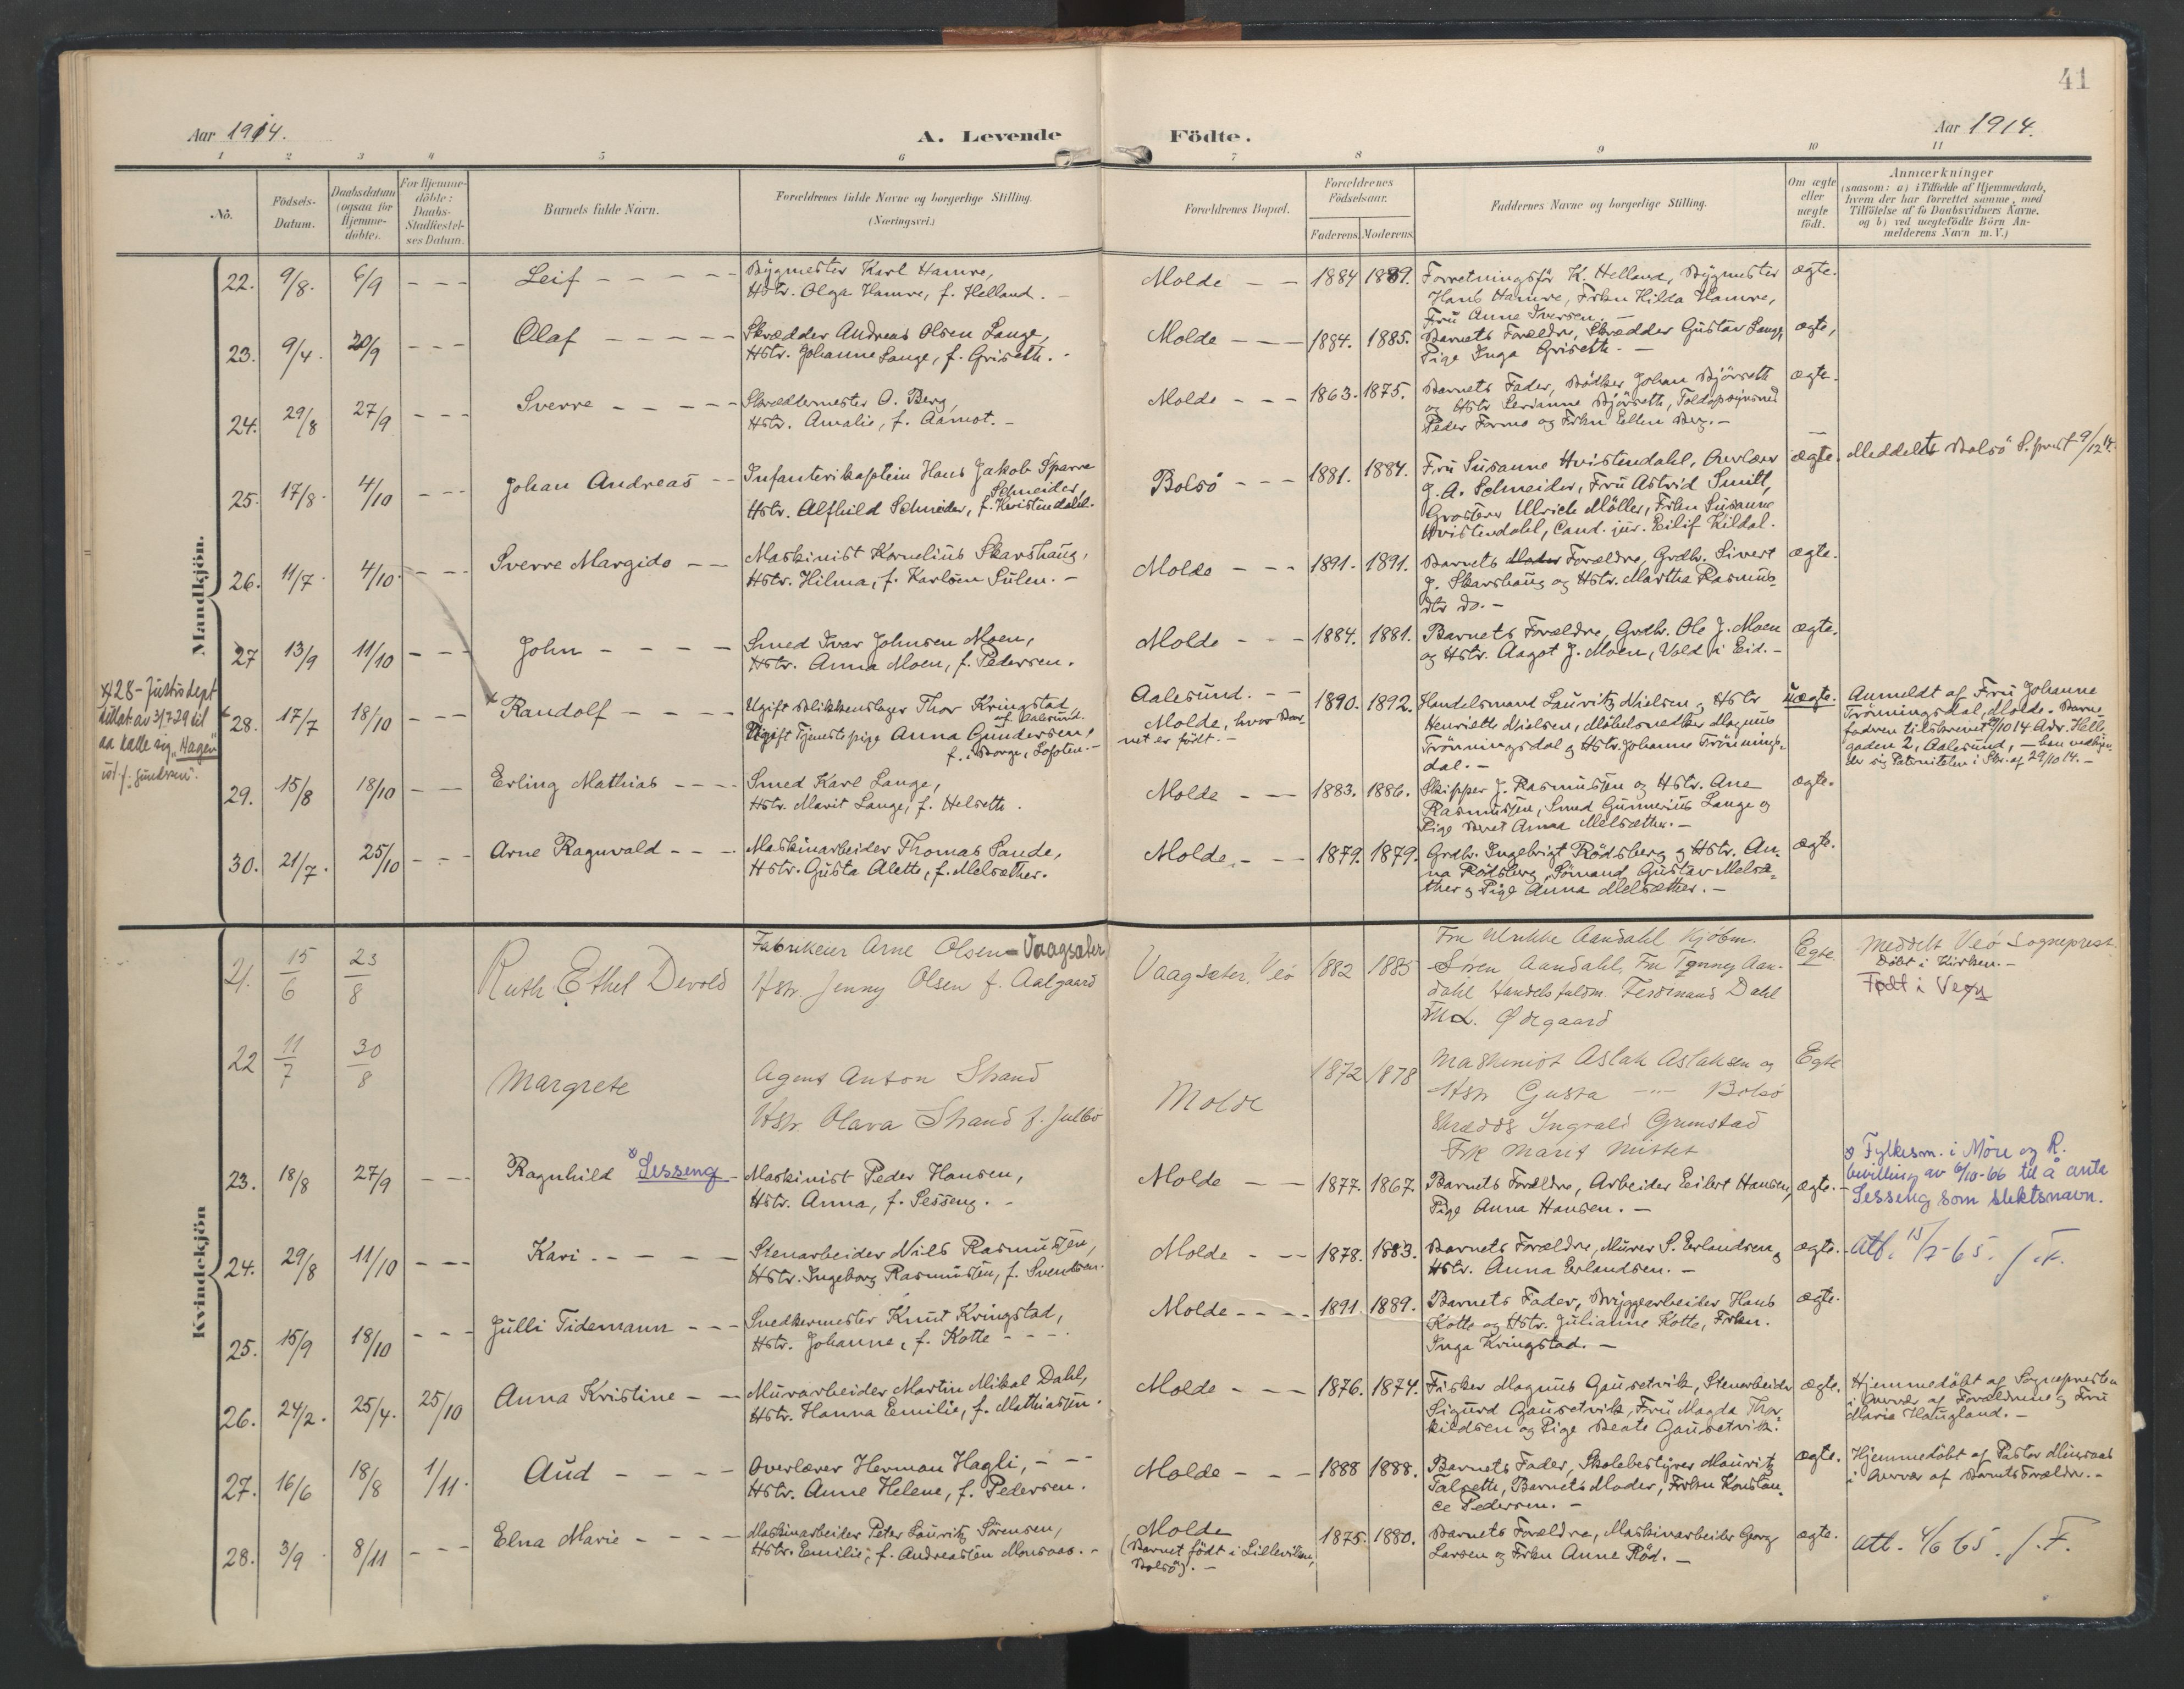 41
Aar 1914.
A. Levende
Födte.
Aar 1914.
1 2 3 4 5 6 7 8 9 10 11
No.
Födsels-
Datum.
Daabsdatum
(ogsaa for
Hjemme-
døbte).
For Hjemme-
döbte:
Daabs-
Stadfæstel-
ses Datum.
Barnets fulde Navn.
Forældrenes fulde Navne og borgerlige Stilling.
(Næringsvei.)
Forældrenes Bopæl.
Forældrenes
Födselsaar.
Faderens. Moderens.
Faddernes Navne og borgerlige Stilling.
Om ægte
eller
uægte
født.
Anmærkninger
(saasom: a) i Tilfælde af Hjemmedaab,
hvem der har forrettet samme, med
Tilföielse af to Daabsvidners Navne.
og b) ved uægtefödte Börn An-
melderens Navn m. V.)
Mandkjön.
22. 9/8. 6/9 - - - Leif - - - - - Bygmester Karl Hamre,
Hstr. Olga Hamre, f. Helland. -
Molde - - 1884 1889. Forretningsfø K. Helland, Bygmester
Hans Hamre, Frkn Hilda Hamre,
Fru Anne Iversen. -
ægte.
23. 9/4. 20/9 - - - Olaf - - - - - Skrædder Andreas Olsen Lange,
Hstr. Johanne Lange, f. Griseth. -
Molde - - - 1884. 1885. Barnets Forældre, Skrædder Gustav Lange,
Pige Inga Griseth. -
ægte,
24. 29/8 27/9 - - - Sverre - - - - - Skræddermester O. Berg,
Hstr. Amalie, f. Aamot. -
Molde - - - 1863. 1875. Barnets Fader, Bødker Johan Bjørseth
og Hstr Serianne Bjørseth, Toldopsynsmd
Peder Formo og Frkn Ellen Berg. -
ægte.
25. 17/8. 4/10 - - - Johan Andreas - - Infanterikaptein Hans Jakob Sparre
Schneider,
Hstr. Alfhild Schneider, f. Hvistendahl.
Bolsö - - - 1881. 1884. Fru Susanne Hvistendahl, Overlærer
J. A. Schneider, Fru Astrid Smitt,
Grosserer Ulrich Möller, Frkn Susanne
Hvistendahl, Cand. jur. Eilif Kildal.
ægte. Meddelt Bolsö S.prest 9/12 14.
26. 11/7. 4/10. - - - Sverre Margido - - Maskinist Kornelius Skarshaug,
Hstr. Hilma, f. Karlsen Sulen. -
Molde - - - 1891. 1891. Barnets Moder Forældre, Grdbr. Sivert
J. Skarshaug og Hstr. Martha Rasmus-
dtr do. -
ægte.
27 13/9 11/10 - - - John - - - - Smed Ivar Johnsen Moen,
Hstr. Anna Moen, f. Pedersen.
Molde - - - 1884. 1881. Barnets Forældre, Grdbr. Ole J. Moen
og Hstr. Aagot J. Moen, Vold i Eid. -
ægte.
x28 - Justisdept
tillot av 31/7 29 til
aa kalle sig "Hagen"
ist. f. Gundersen".
x 28. 17/7 18/10 - - - x Randolf - - - - Ugift Blikkenslager Thor Kringstad
af Aalesund.
Ugift Tjenestepige Anna Gundersen,
f. i Borge, Lofoten. -
Aalesund. - -
Molde, hvor Bar-
net er født. -
1890. 1892. Handelsmand Lauritz Nielsen og Hstr
Henriette Nielsen, Møbelsnedker Magnus
Trønningsdal og Hstr. Johanne Trønnings-
dal. -
uægte. Anmeldt af Fru Johanne
Trønningsdal, Molde. Barne-
faderen tilskrevet 29/10 14. Adr. Helle
gaden 2, Aalesund, - han vedkjen
der sig Paterniteten i Skr. af 29/10 14. -
29. 15/8 18/10 - - - Erling Mathias - - - Smed Karl Lange,
Hstr. Marit Lange, f. Helseth.
Molde - - - 1883. 1886. Skipper J. Rasmussen og Hstr. Ane
Rasmussen, Smed Gunnerius Lange og
Pige Beret Anna Melsæther. -
ægte.
30. 21/7. 25/10 - - - Arne Ragnvald - - - Maskinarbeider Thomas Sande,
Hstr. Gusta Alette, f. Melsæther.
Molde. - - - 1879. 1879. Grdbr. Ingebrigt Rödsberg og Hstr. An-
na Rödsberg, Sömand Gustav Melsæ-
ther og Pige Anna Melsæther. -
ægte.
Kvindekjön
21. 15/6 23/8 Ruth Ethel Devold Fabrikeier Arne Olsen - Vaagsæter
Hstr Jenny Olsen f. Aalgaard
Vaagsæter, Veø 1882 1885 Fru Ulrikke Aandahl Kjøbm.
Søren Aandahl, Fru Jenny Aan-
dahl Handelsfuldm. Ferdinand Dahl
Frk. Ødegaard
Egte. Meddelt Veø Sogneprest.
Døbt i Kirken. -
Født i Veøy
22 11/7 30/8 Margrete Agent Anton Strand
Hstr. Olava Strand f. Julbø
Molde 1872 1878 Maskinist Aslak Aslaksen og
Hstr Gusta - " - Bolsø
Skrædd Ingvald Grimstad
Frk Marit Mittet
Egte
23. 18/8 27/9 - - - Ragnhild x Sesseng - Maskinist Peder Hansen,
Hstr. Anna, f. Sesseng. -
Molde - - 1877. 1867. Barnets Forældre, Arbeider Eilert Hansen,
Pige Anna Hansen. -
ægte. - x Fylkesm. i Möre og R.
bevilling av 6/10-66 til å anta
Sesseng som slektsnavn.
24. 29/8 11/10 - - - Kari - - - - - Stenarbeider Nils Rasmussen,
Hstr. Ingeborg Rasmussen, f. Svendsen.
Molde - - - 1878. 1883. Barnets Forældre, Murer S. Erlandsen og
Hstr. Anna Erlandsen. -
ægte. - Att. 15/7-65. J.F.
25. 15/9 18/10 - - - Julli Tidemann - - - Snedkermester Knut Kringstad,
Hstr. Johanne, f. Kotte - - - -
Molde - - - - 1891. 1889. Barnets Fader, Bryggearbeider Hans
Kotte og Hstr. Julianne Kotte, Frkn.
Inga Kringstad. -
ægte.
26. 24/2. 25/4. 25/10 Anna Kristine - - Murarbeider Martin Mikal Dahl,
Hstr. Hanna Emilie, f. Mathiassen.
Molde - - - 1876. 1874. Fisker Magnus Gausetvik, Stenarbeider
Sigurd Gausetvik, Fru Magda Thor
kildsen og Pige Beate Gausetvik.
ægte. Hjemmedöbt af Sognepresten
i Nærvær af Forældrene og Fru
Marie Haugland. -
27. 16/6 18/8 1/11. Aud - - - - Overlærer Herman Hagli, - - -
Hstr. Anne Helene, f. Pedersen.
Molde - - - 1888 1888. Barnets Fader, Skolebestyrer Mauritz
Talseth, Barnets Moder, Frkn Konstan-
ce Pedersen. -
ægte. Hjemmedöbt af Pastor Minsaas
i Nærvær af Barnets Forældre. -
28. 3/9 8/11 - - - Elna Marie - - - - Maskinarbeider Peter Lauritz Sørensen,
Hstr. Emilie, f. Andreassen Monsaas. -
Molde
(Barnet født i Lillevikan,
Bolsö). -
1875. 1880. Barnets Forældre, Maskinarbeider Georg
Larsen og Frkn Anne Röd. -
ægte. Att. 4/6 65. J.F.